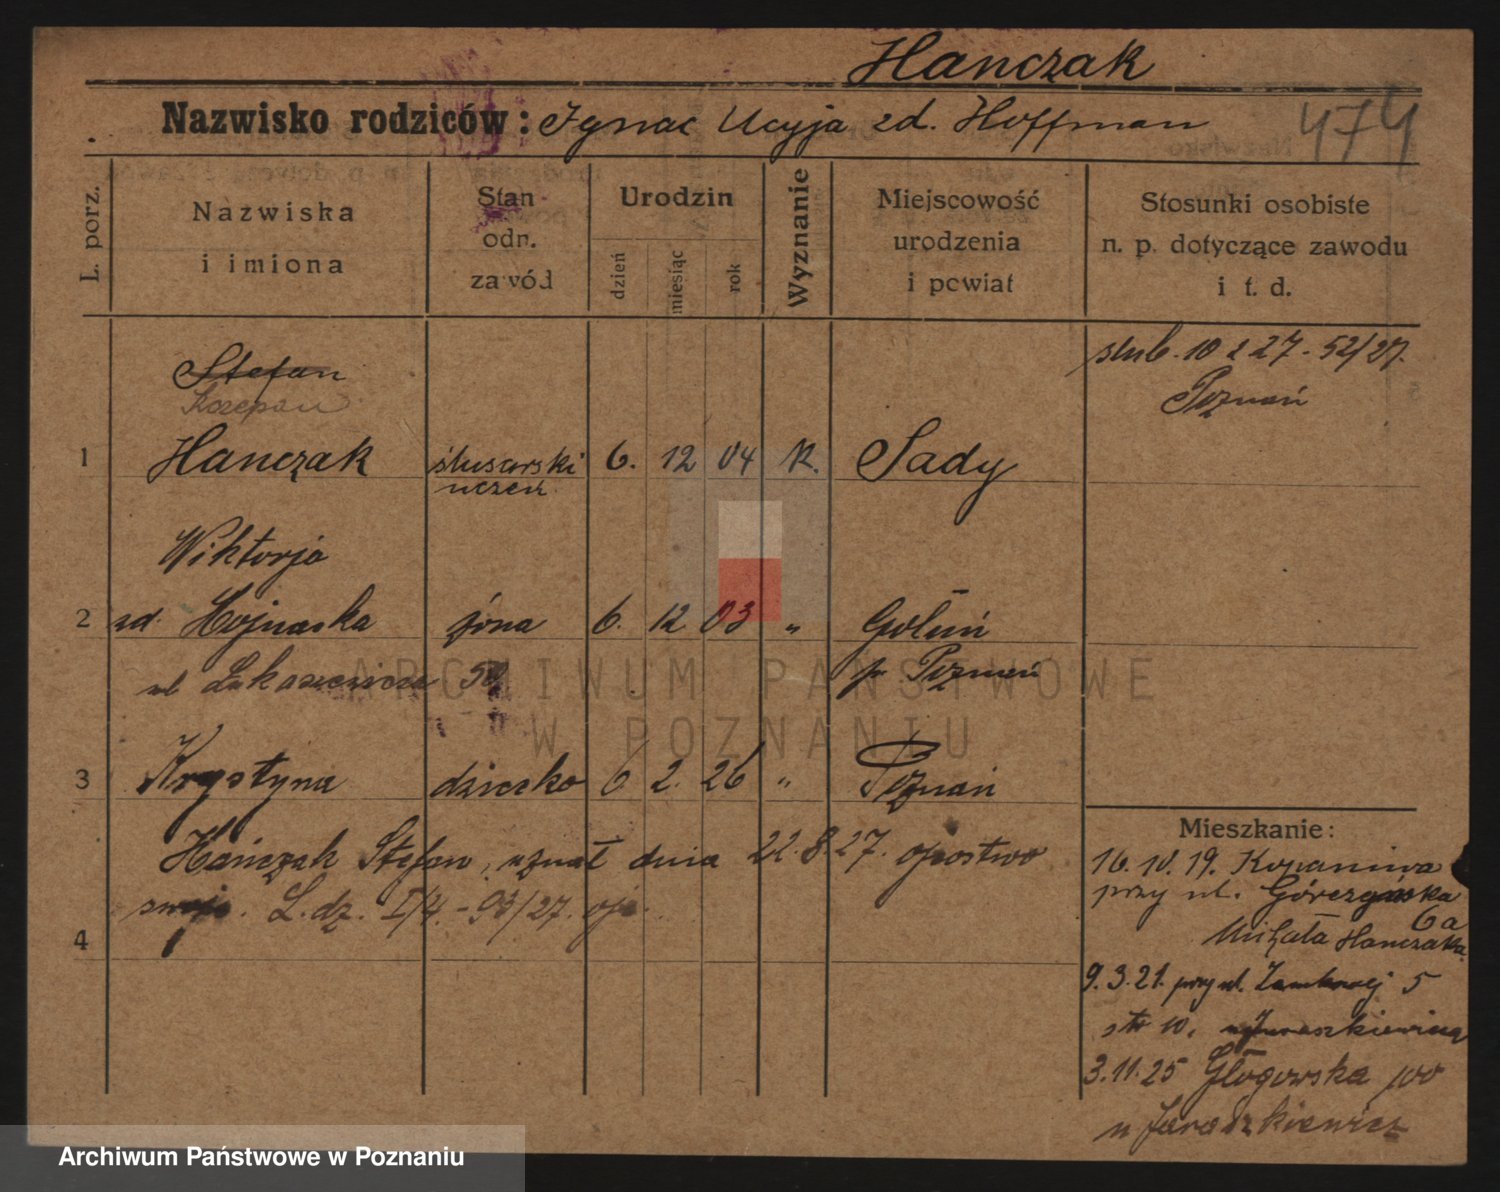 Hanczak
Nazwisko rodziców: Ignac Ucyja zd. Hoffman
474
L. porz.
Nazwiska
i imiona
Stan
odn.
zawód
Urodzin
dzień
miesiąc
rok
Wyznanie
Miejscowość
urodzenia
i powiat
Stosunki osobiste
n. p. dotyczące zawodu
i t. d.
ślub. 10 2 27 - 52/27.
Poznań
Stefan
Szczepan
1 Hanczak ślusarski 6. 12 04 K. Sady
uczeń
Wiktorja
2 zd. żona 6. 12 03 " Golun
ul Łukaszewicza p. Poznań
3 Krystyna dziecko 6 2. 26 " Poznań
Hańczak Stefan, uznał dnia 22.8.27. ojcostwo
L. dz. I/4. - 93/27.
4
Mieszkanie:
16.10.19. Kopanina
przy ul. Górczyńska
6a
Michała Hanczaka
9.3.21. przy ul. Zamkowej 5
str 10.
3.11.25 Głogowska 100
u Juraszkiewicz
ARCHIWUM PAŃSTWOWE
W POZNANIU
Archiwum Państwowe w Poznaniu